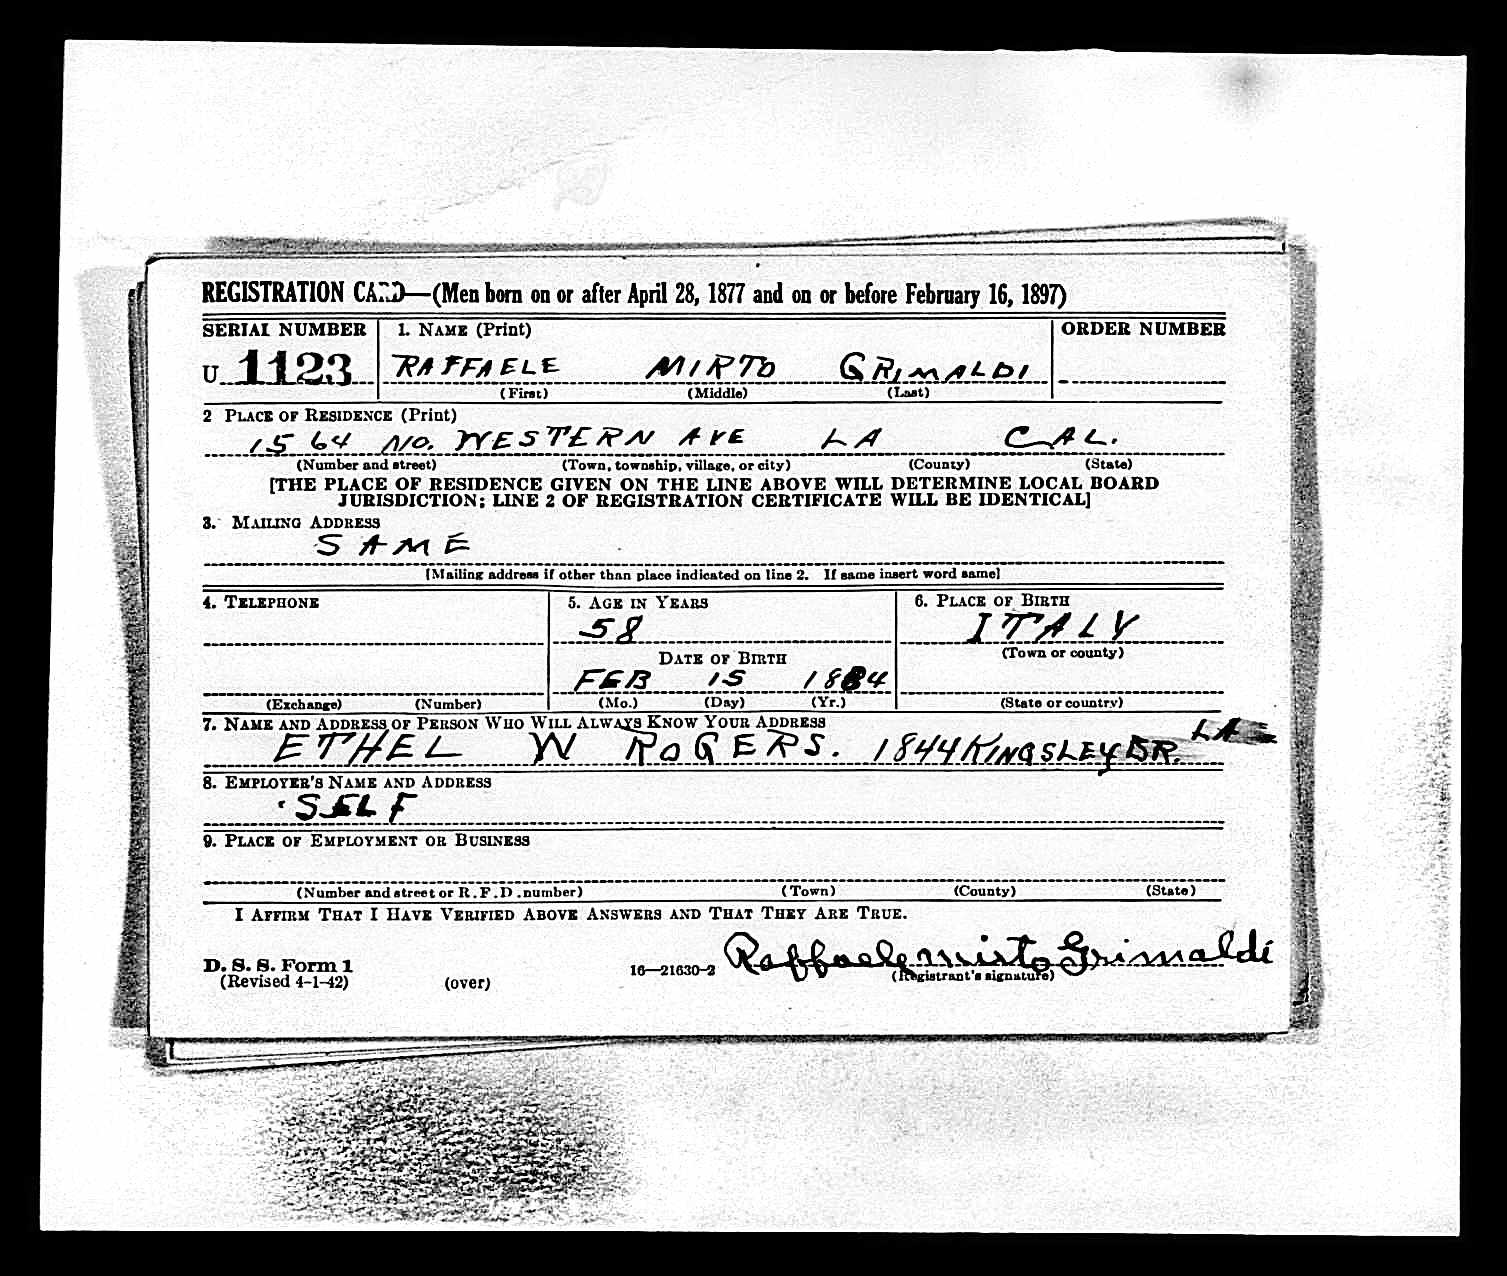 REGISTRATION CARD—(Men born on or after April 28, 1877 and on or before February 16, 1897)
SERIAL NUMBER 1. NAME (Print) ORDER NUMBER
U 1123 RAFFAELE MIRTO GRIMALDI
(First) (Middle) (Last)
2 PLACE OF RESIDENCE (Print)
1564 NO. WESTERN AVE LA CAL.
(Number and street) (Town, township, village, or city) (County) (State)
[THE PLACE OF RESIDENCE GIVEN ON THE LINE ABOVE WILL DETERMINE LOCAL BOARD
JURISDICTION; LINE 2 OF REGISTRATION CERTIFICATE WILL BE IDENTICAL]
3. MAILING ADDRESS
SAME
[Mailing address if other than place indicated on line 2. If same insert word same]
4. TELEPHONE 5. AGE IN YEARS 6. PLACE OF BIRTH
58 ITALY
DATE OF BIRTH (Town or county)
FEB 15 1884
(Exchange) (Number) (Mo.) (Day) (Yr.) (State or country)
7. NAME AND ADDRESS OF PERSON WHO WILL ALWAYS KNOW YOUR ADDRESS
ETHEL W ROGERS. 1844 KINGSLEY DR. LA
8. EMPLOYER'S NAME AND ADDRESS
SELF
9. PLACE OF EMPLOYMENT OR BUSINESS
(Number and street or R.F.D. number) (Town) (County) (State)
I AFFIRM THAT I HAVE VERIFIED ABOVE ANSWERS AND THAT THEY ARE TRUE.
Raffaele mirto Grimaldi
D. S. S. Form 1 16—21630-2 (Registrant's signature)
(Revised 4-1-42) (over)